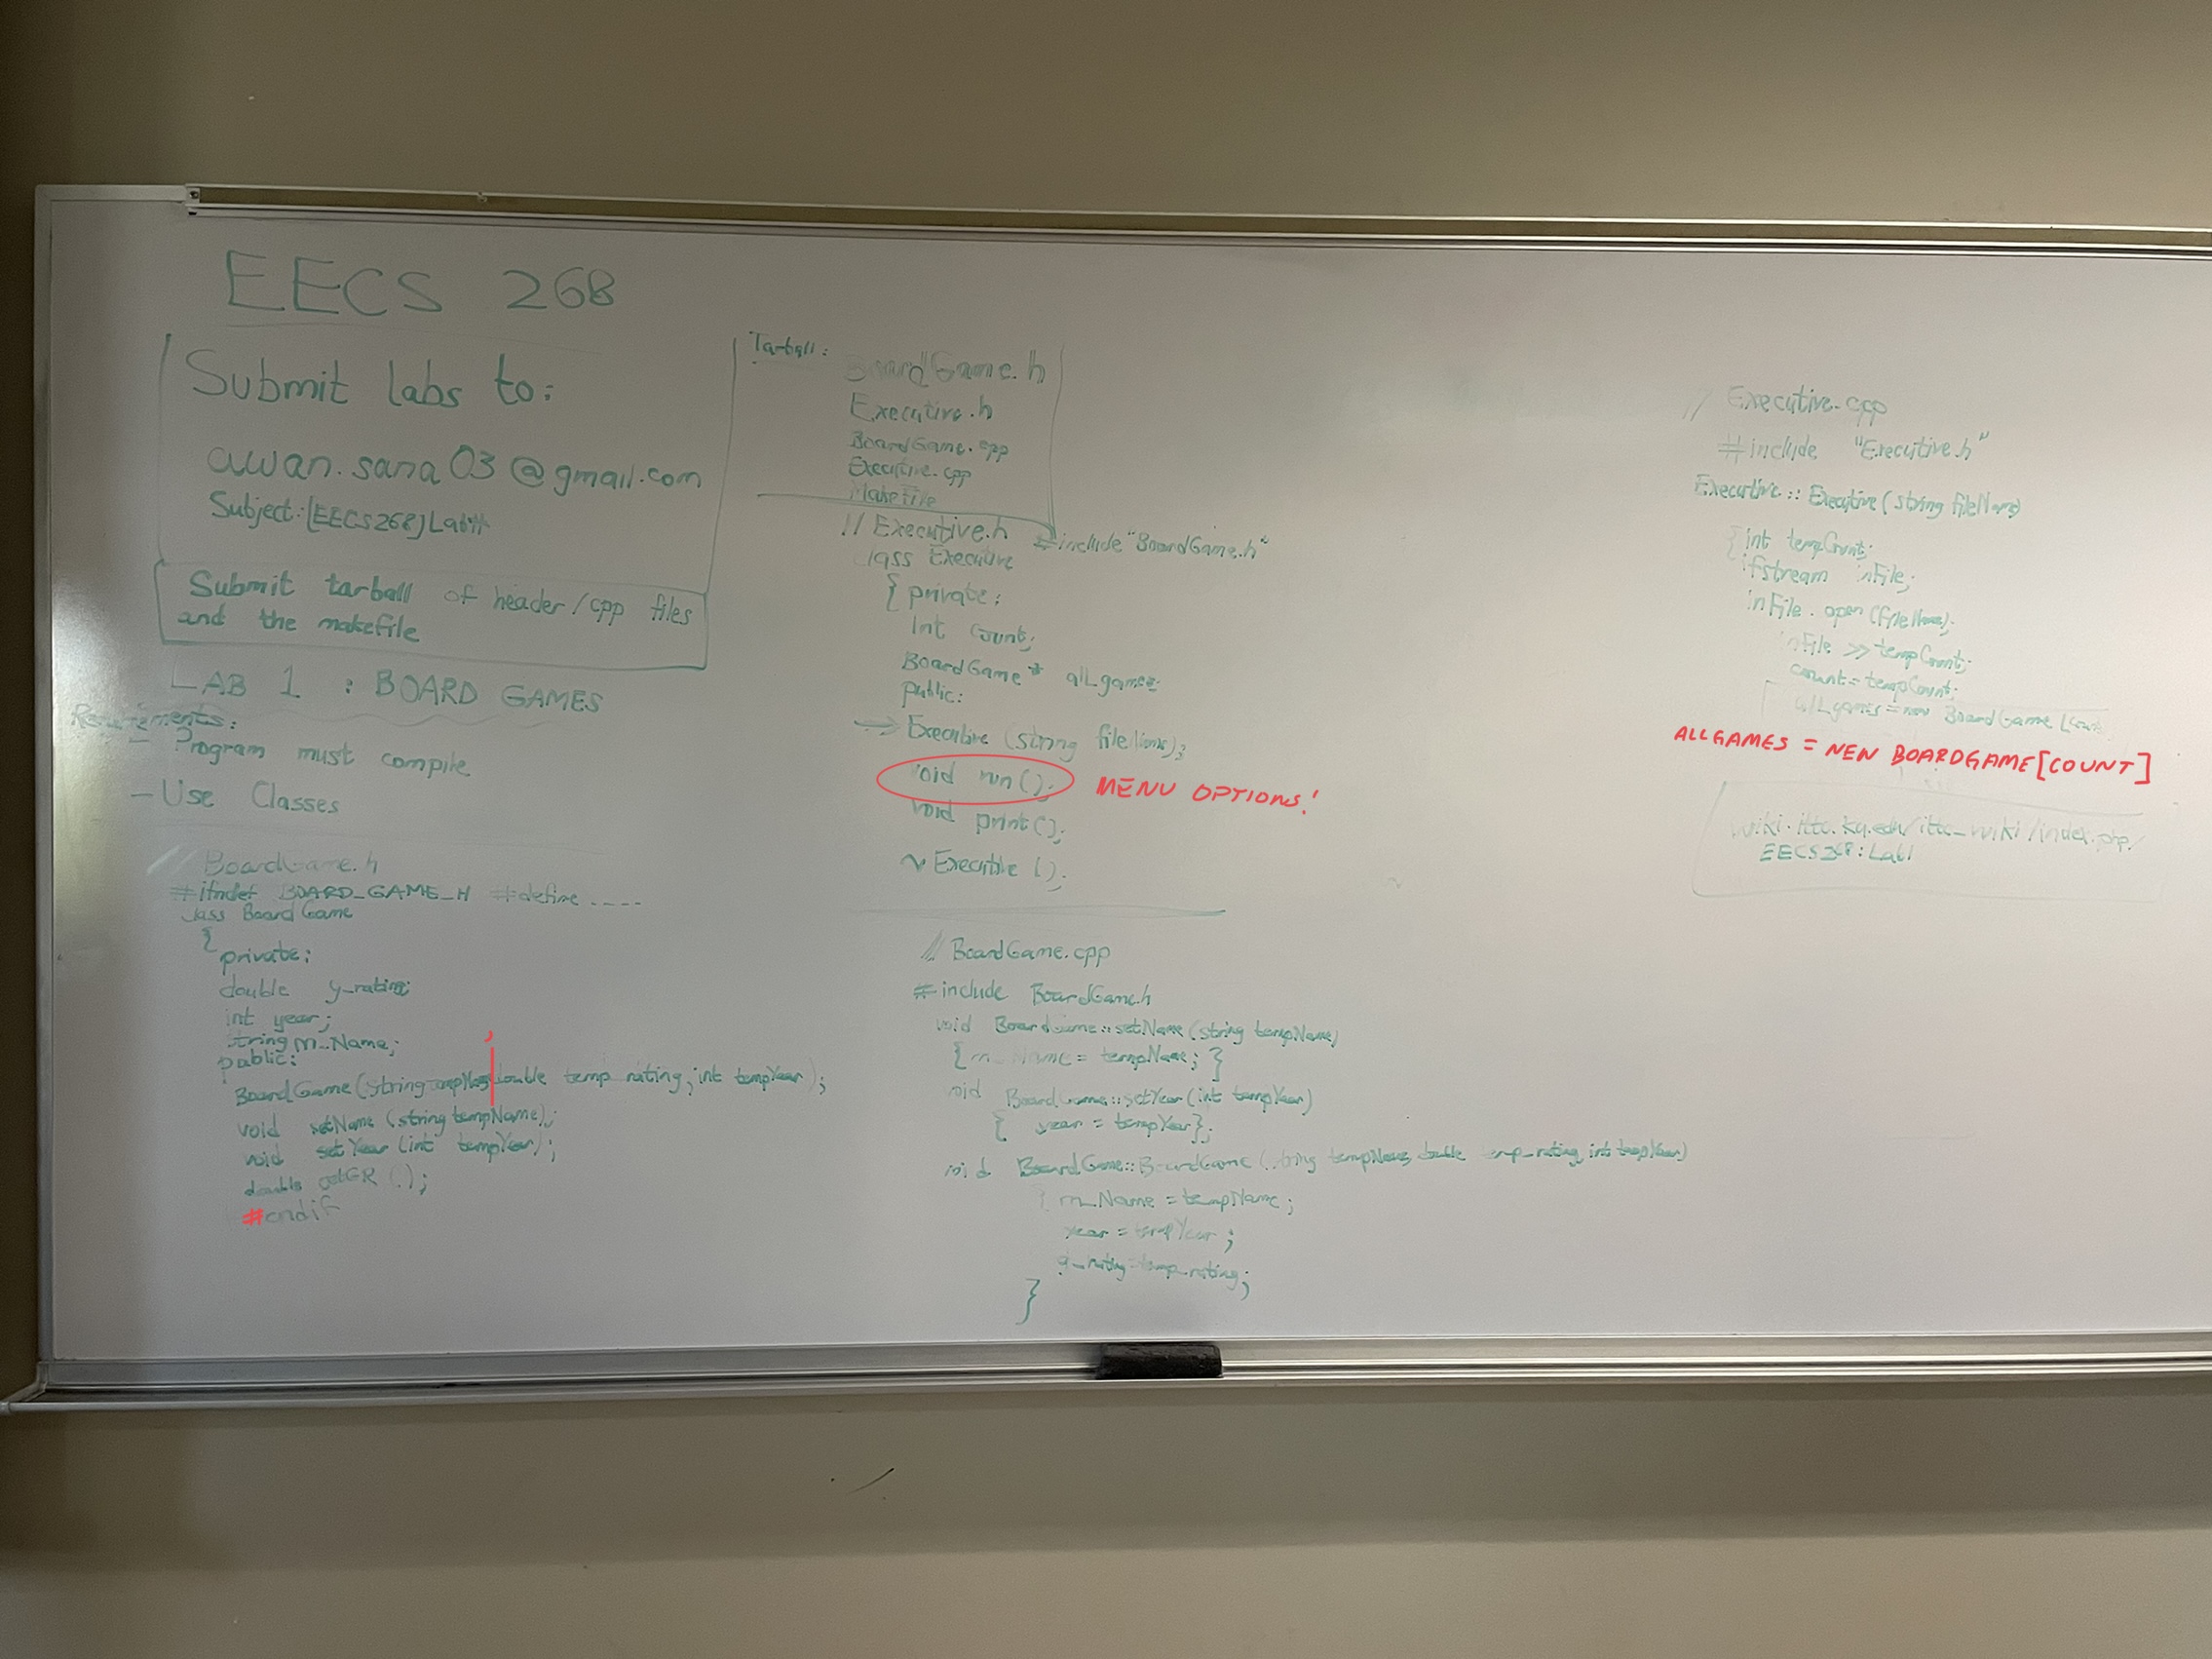 EECS 268
Submit labs to:
awan.sana03@gmail.com
Subject:[EECS268]Lab#
Submit tarball of header/cpp files
and the makefile
LAB 1 : BOARD GAMES
Requirements:
- Program must compile
- Use Classes
// BoardGame.h
#ifndef BOARD_GAME_H #define ....
class BoardGame
{
private:
double g_rating;
int year;
string m_Name;
public:
BoardGame(string tempName, double temp_rating, int tempYear);
void setName (string tempName);
void setYear (int tempYear);
double getGR ();
#endif
Tarball:
BoardGame.h
Executive.h
BoardGame.cpp
Executive.cpp
MakeFile
// Executive.h #include "BoardGame.h"
class Executive
{ private:
int count;
BoardGame* allgames;
public:
Executive (string fileName);
void run(); MENU OPTIONS!
void print();
~Executive ();
// BoardGame.cpp
#include BoardGame.h
void BoardGame::setName (string tempName)
{ m_Name = tempName; }
void BoardGame::setYear (int tempYear)
{ year = tempYear};
void BoardGame::BoardGame (string tempName, double temp_rating, int tempYear)
{ m_Name = tempName;
year = tempYear;
g_rating=temp_rating;
}
// Executive.cpp
#include "Executive.h"
Executive :: Executive (string fileName)
{ int tempCount;
ifstream inFile;
inFile.open(fileName);
inFile >> tempCount;
count = tempCount;
allgames = new BoardGame [count
ALLGAMES = NEW BOARDGAME[COUNT]
wiki.ittc.ku.edu/ittc_wiki/index.php/
EECS268:Lab1